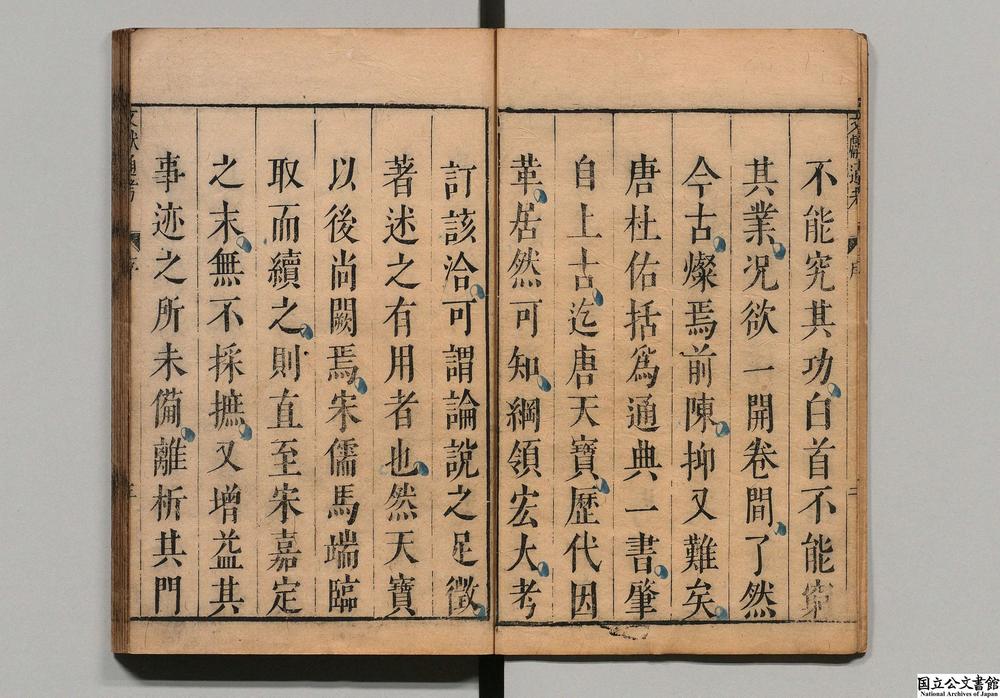 不能究其功白首不能窮
其業况欲一開卷間了然
今古燦焉前陳抑又難矣
唐杜佑括爲通典一書肇
自上古迄唐天寶歷代因
革居然可知綱領宏大考
訂該洽可謂論說之足徵
著述之有用者也然天寶
以後尚闕焉宋儒馬端臨
取而續之則直至宋嘉定
之末無不採摭又增益其
事迹之所未備離析其門
文獻通考
序
文獻通考
序
国立公文書館
National Archives of Japan